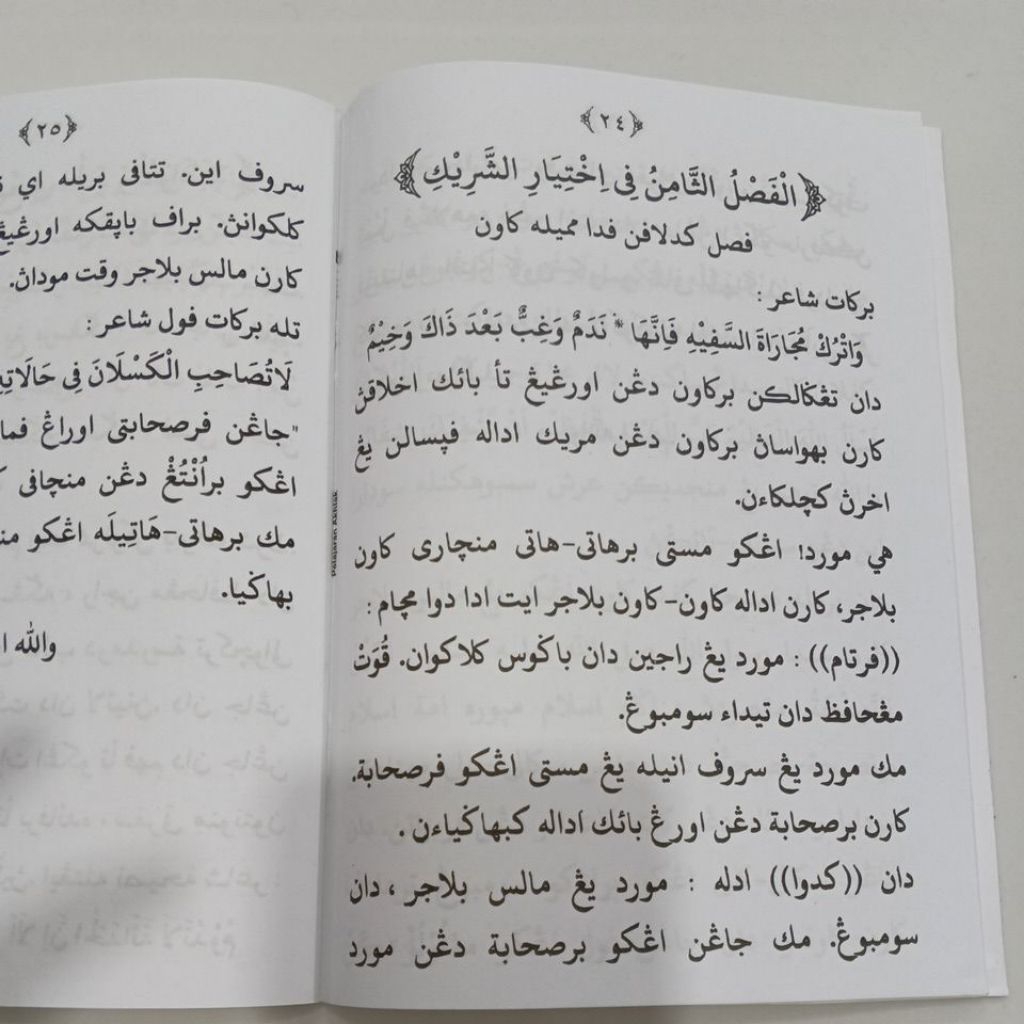 ﴿٢٤﴾
﴿الْفَصْلُ الثَّامِنُ فِى اِخْتِيَارِ الشَّرِيْكِ﴾
فصل كدلافن فدا مميله كاون
بركات شاعر :
وَاتْرُكْ مُجَارَاةَ السَّفِيْهِ فَإِنَّهَا * نَدَمٌ وَغِبٌّ بَعْدَ ذَاكَ وَخِيْمٌ
دان تڠݢالكن بركاون دڠن اورڠيڠ تأ بائك اخلاقڽ
كارن بهواساڽ بركاون دڠن مريك اداله فپسالن يڠ
اخرڽ كچلكاءن.
هي مورد! اڠكو مستى برهاتى-هاتى منچارى كاون
بلاجر، كارن اداله كاون-كاون بلاجر ايت ادا دوا مچام :
((فرتام)) : مورد يڠ راجين دان باݢوس كلاكوان. قُوَتْ
مڠحافظ دان تيداء سومبوڠ.
مك مورد يڠ سروف انيله يڠ مستى اڠكو فرصحابة.
كارن برصحابة دڠن اورڠ بائك اداله كبهاݢياءن .
دان ((كدوا)) ادله : مورد يڠ مالس بلاجر ، دان
سومبوڠ. مك جاڠن اڠكو برصحابة دڠن مورد
﴿٢٥﴾
سروف اين. تتافى بريله اي
كلكوانڽ. براف باپقكه اورڠيڠ
كارن مالس بلاجر وقت موداڽ.
تله بركات فول شاعر :
لَاتُصَاحِبِ الْكَسْلَانَ فِى حَالَاتِهِ
"جاڠن فرصحابتى اوراڠ فما
اڠكو براُنْتُڠْ دڠن منچافى
مك برهاتى-هَاتِيلَه اڠكو
بهاݢيا.
والله